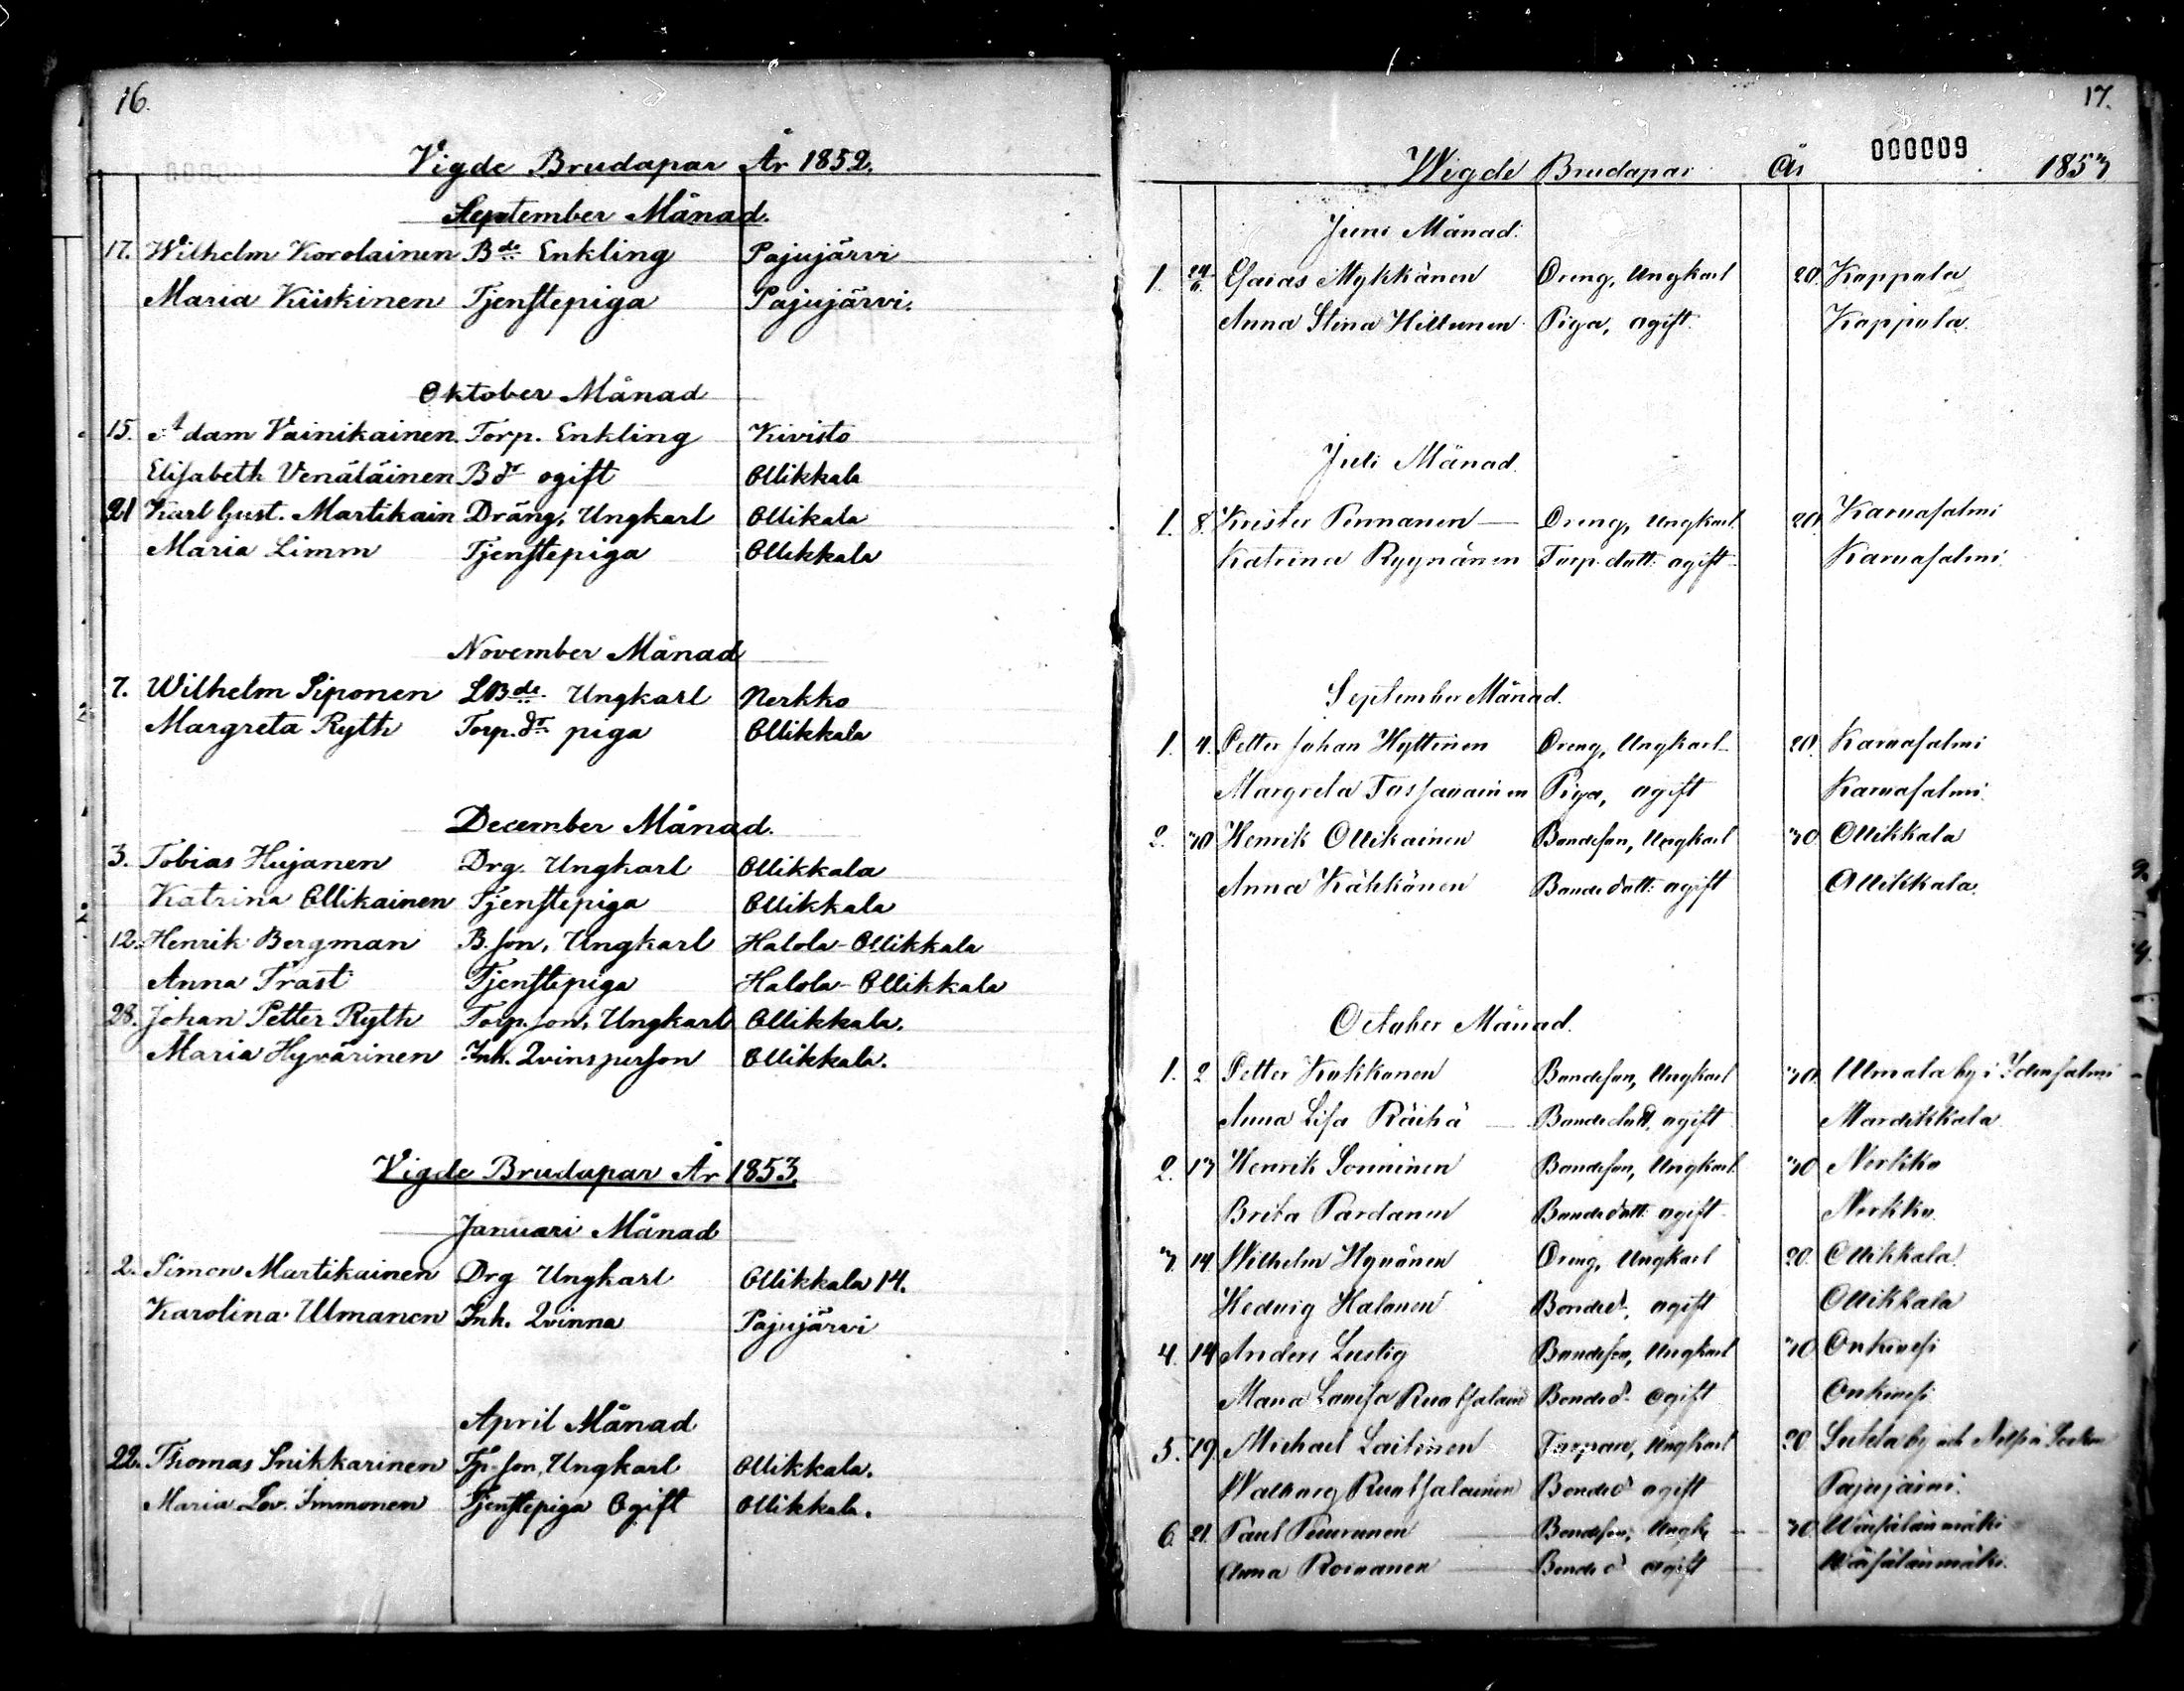 16.
Vigde Brudapar År 1852.
September Månad.
17. Wilhelm Korolainen Bde Enkling Pajujärvi
Maria Kiiskinen Tjenstepiga Pajujärvi.
Oktober Månad
15. Adam Vainikainen. Torp. Enkling Kivisto
Elisabeth Venäläinen Bdr ogift Ollikkala
21 Karl Gust. Martikain Dräng, Ungkarl Ollikala
Maria Limm Tjenstepiga Ollikkala
November Månad
7. Wilhelm Siponen LBde. Ungkarl Nerkko
Margreta Ryth Torp. dr piga Ollikkala
December Månad.
3. Tobias Hujanen Drg. Ungkarl Ollikkala
Katrina Ollikainen Tjenstepiga Ollikkala
12. Henrik Bergman B. son, Ungkarl Halola-Ollikkala
Anna Trast Tjenstepiga Halola-Ollikkala
28. Johan Petter Ryth Torp. son, Ungkarl Ollikkala.
Maria Hyvärinen Inh. Qvinsperson Ollikkala.
Vigde Brudapar År 1853.
Januari Månad
2. Simon Martikainen Drg Ungkarl Ollikkala 14.
Karolina Ulmanen Inh. Qvinna Pajujärvi
April Månad
22. Thomas Snikkarinen Tp. son, Ungkarl Ollikkala.
Maria Lov. Immonen Tjenstepiga Ogift Ollikkala.
17.
000009
Wigde Brudapar År 1853
Juni Månad.
1. 24/6 Esaias Mykkänen Dreng, Ungkarl 20. Kappala
Anna Stina Hiltunen Piga, ogift. Kappala.
Juli Månad.
1. 8. Krister Pennanen Dreng, Ungkarl. 20. Karvasalmi
Katrina Ryynänen Torp. dott. ogift. Karvasalmi.
September Månad.
1. 4. Petter Johan Hyttinen Dreng, Ungkarl 20. Karvasalmi
Margreta Tossavainen Piga, ogift Karvasalmi.
2. 30 Henrik Ollikainen Bondeson, Ungkarl 30 Ollikkala
Anna Kähkönen Bondedott. ogift Ollikkala.
October Månad.
1. 2 Petter Kukkonen Bondeson, Ungkarl 30. Ulmala by i Idensalmi
Anna Lisa Räihä Bondedott, ogift Mardikkala
2. 13 Henrik Sonninen Bondeson, Ungkarl. 30 Nerkko
Brita Pardanen Bondedott. ogift Nerkko.
3. 14. Wilhelm Hyvönen Dreng, Ungkarl 20. Ollikkala.
Hedvig Halonen Bonded. ogift Ollikkala
4. 14 Anders Lustig Bondeson, Ungkarl 30 Onkivesi
Maria Lovisa Ruotsalain Bonded. ogift Onkivesi
5. 19. Michael Laitinen Torpare, Ungkarl 20 by
Walborg Ruotsalainen Bonded ogift Pajujärvi.
6. 21. Paul Ungk. 30 Wäisälänmäki
Anna Roivanen Bonded ogift Wäisälänmäki.